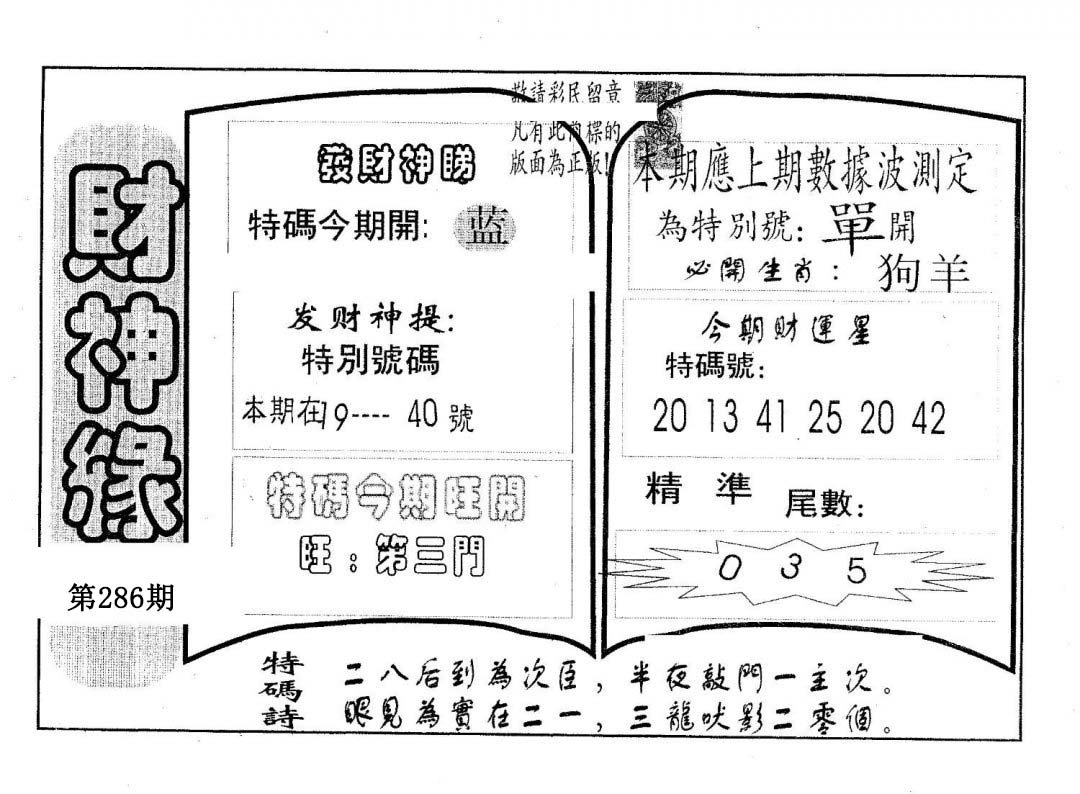 財神緣
第286期
敬請彩民留意
凡有此商標的
版面為正版!
發財神賜
特碼今期開: 蓝
发财神提:
特別號碼
本期在19---- 40號
特碼今期旺開
旺: 第三門
本期應上期數據波測定
為特別號: 單開
必開生肖: 狗羊
今期財運星
特碼號:
20 13 41 25 20 42
精準 尾數:
0 3 5
特碼詩
二八后到為次臣, 半夜敲門一主次。
眼見為實在二一, 三龍吠影二零個。